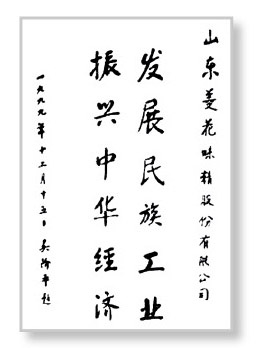 山东菱花味精股份有限公司
发展民族工业
振兴中华经济
一九九九年十二月十五日 吴阶平题